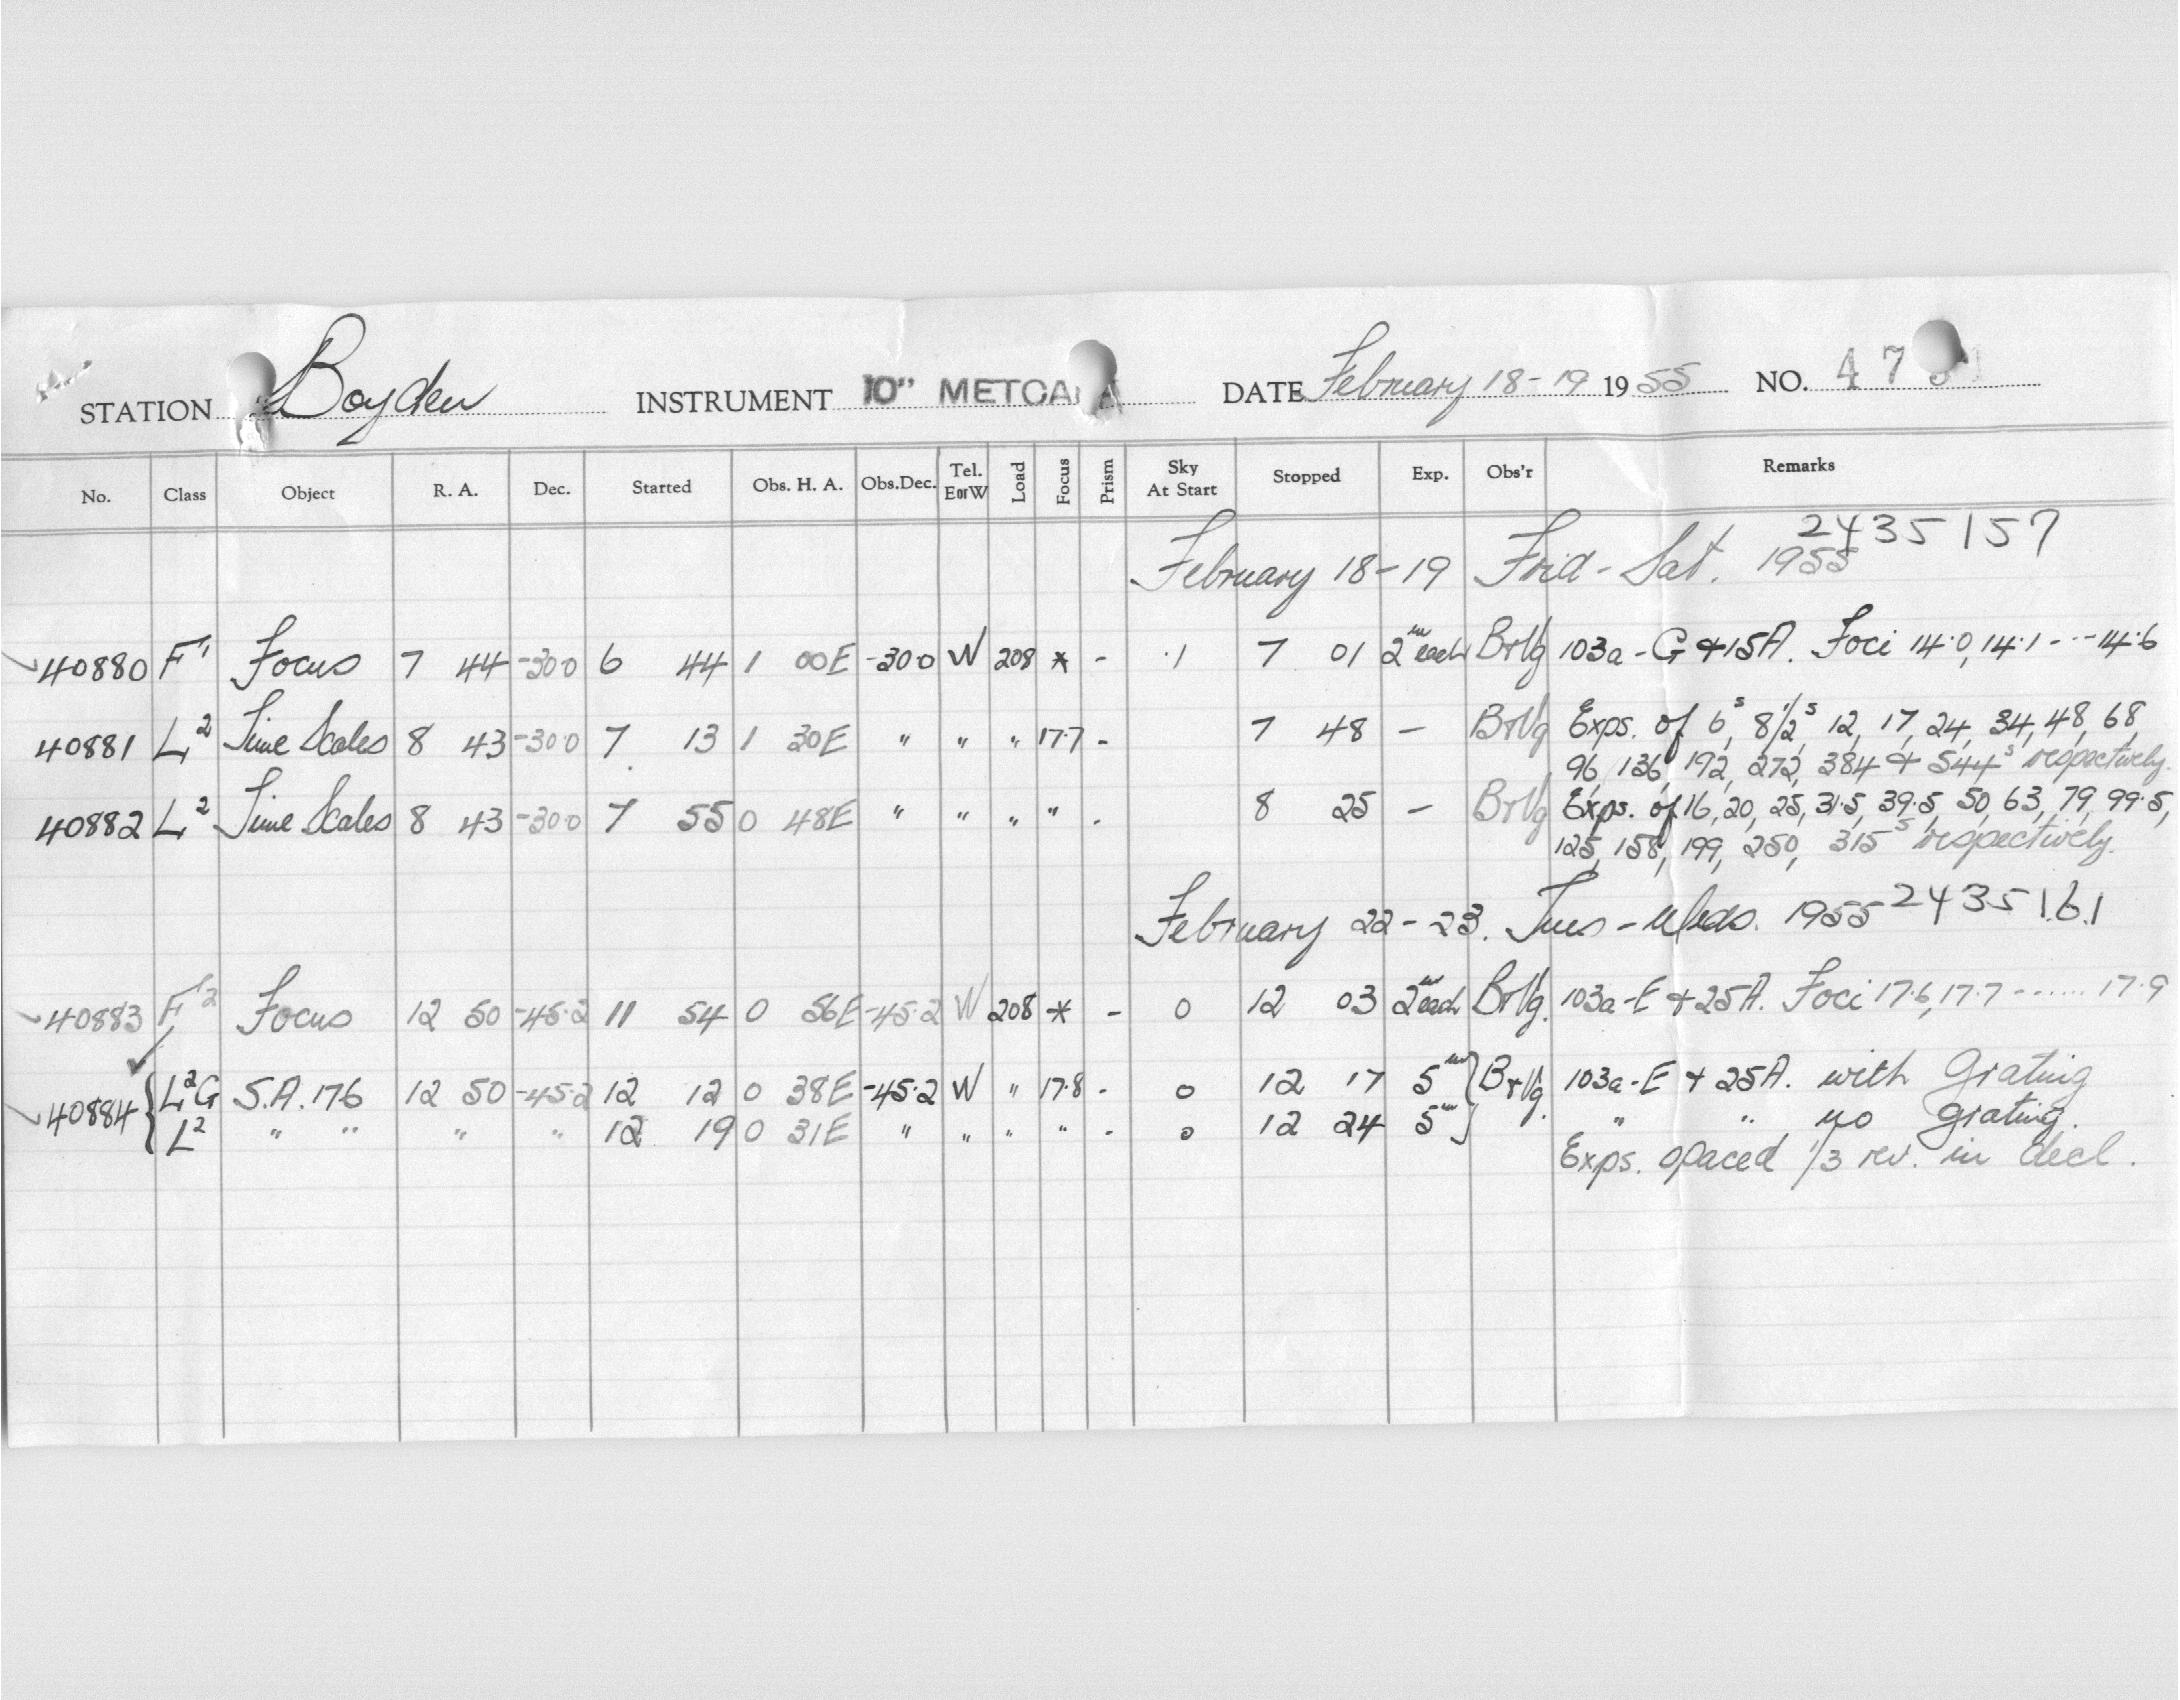 STATION Boyden INSTRUMENT 10" METCA DATE February 18-19 1955 NO. 47
No. Class Object R. A. Dec. Started Obs. H. A. Obs.Dec. Tel. E or W Load Focus Prism Sky At Start Stopped Exp. Obs'r Remarks
2435157
February 18-19 Frid - Sat. 1955
40880 F1 Focus 7 44 -30.0 6 44 1 00E -30.0 W 208 * - .1 7 01 2m each 103a-G + 15A. Foci 14.0, 14.1 --- 14.6
40881 L2 Time Scales 8 43 -30.0 7 13 1 30E " " " 17.7 - 7 48 - Exps. of 6s, 8 1/2s 12, 17, 24, 34, 48, 68,
96, 136, 192, 272, 384 + 544s respectively.
40882 L2 Time Scales 8 43 -30.0 7 55 0 48E " " " " - 8 25 - Exps. of 16, 20, 25, 31.5, 39.5, 50, 63, 79, 99.5,
125, 158, 199, 250, 315s respectively.
February 22-23. Tues - Weds. 1955 2435161
40883 F2 Focus 12 50 -45.2 11 54 0 56E -45.2 W 208 * - 0 12 03 2m each 103a-E + 25A. Foci 17.6, 17.7 ------ 17.9
40884 L2G S.A. 176 12 50 -45.2 12 12 0 38E -45.2 W " 17.8 - 0 12 17 5m 103a-E + 25A. with Grating
L2 " " " " 12 19 0 31E " " " " - 0 12 24 5m " " no grating.
Exps. spaced 1/3 rev. in decl.